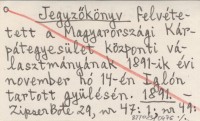 Jegyzőkönyv Felvéte-
tett a Magyarországi Kár-
pátegyesület központi vá-
lasztmányának 1891-ik évi
november hó 14-én Iglón
tartott gyülésén. 1891. –
Zipser Bote 29, nr 47: 1; nr 49: